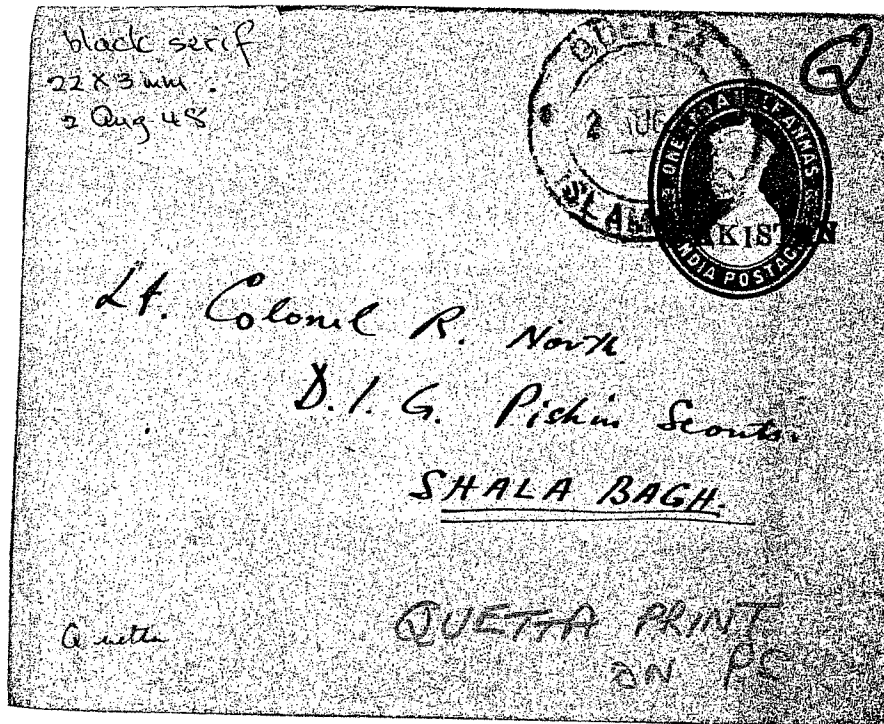 black serif
22 x 3 mm.
2 Aug 48
Q
QUETTA
2 AUG
ISLAM
ONE & A HALF ANNAS
PAKISTAN
INDIA POSTAGE
Lt. Colonel R. North
D.I.G. Pishin Scouts.
SHALA BAGH.
Quetta
QUETTA PRINT
ON PS